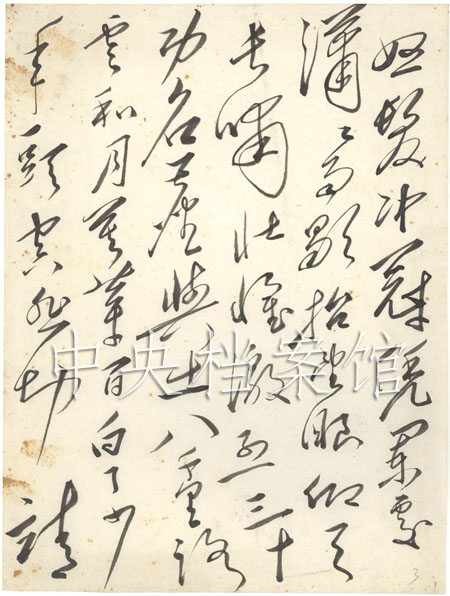 怒髮冲冠凭阑處
潇潇雨歇抬望眼仰天
长嘯壮懷激烈三十
功名塵與土八千里路
雲和月莫等闲白了少
年頭空悲切 靖
中央档案馆
3